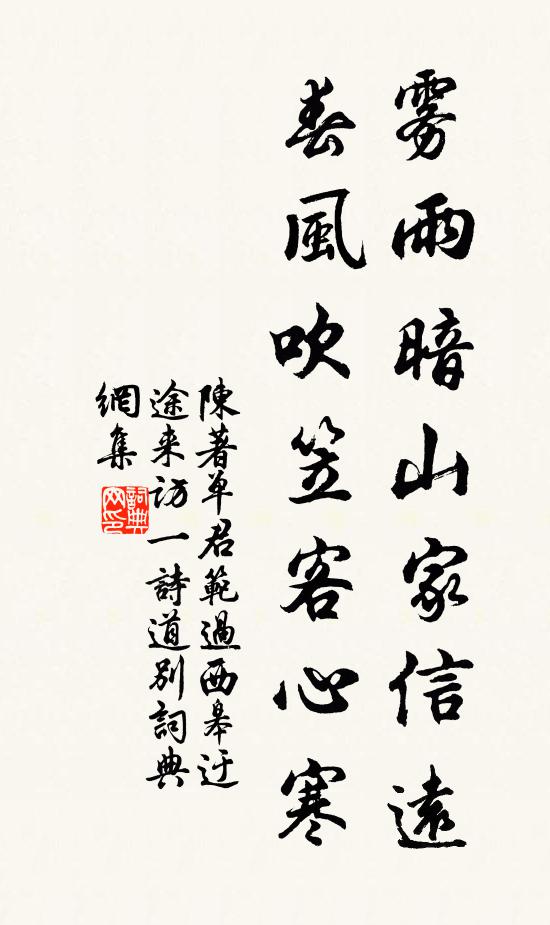 雾雨暗山家信遠
春風吹笠客心寒
陳著單君範過西皋迂
途来訪一詩道別詞典
網集
詞典
网印